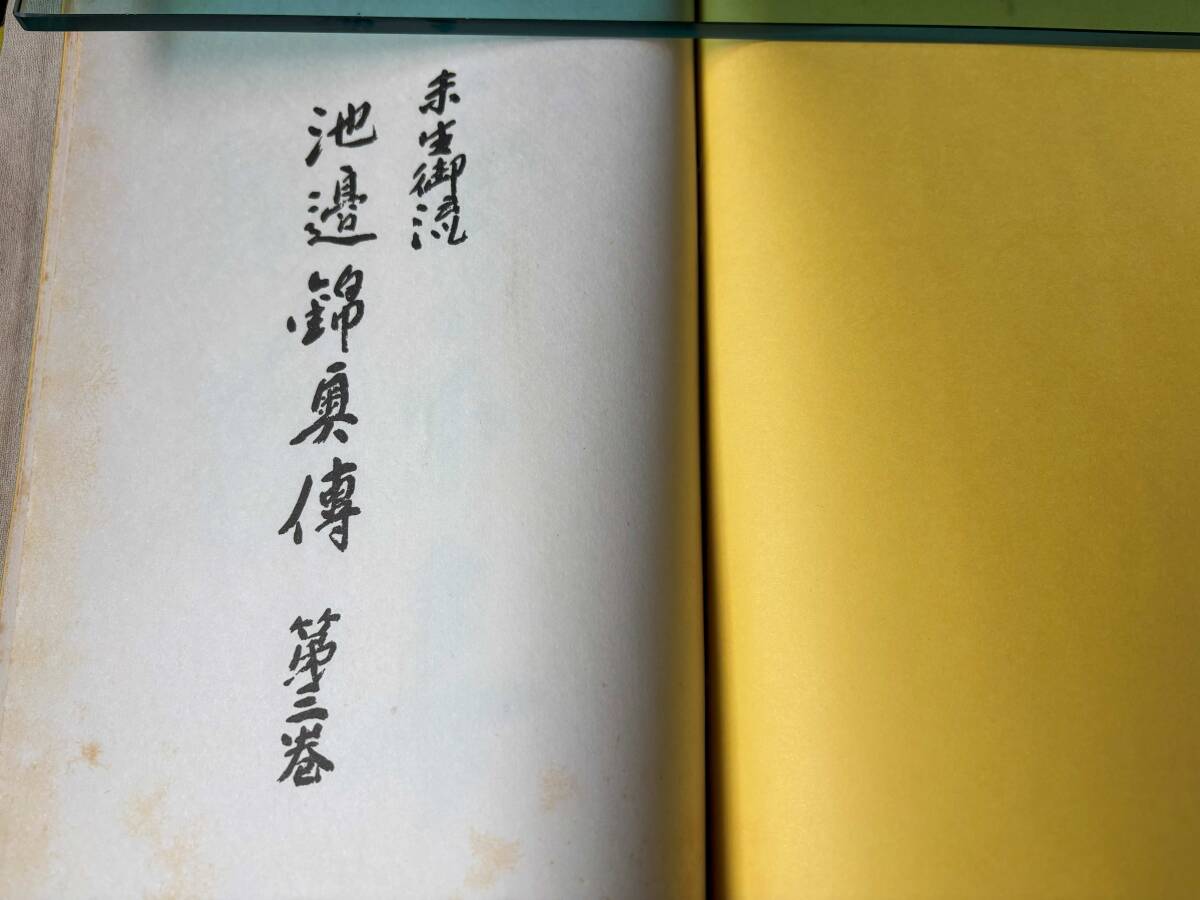 未生御流
池邊錦奥傳 第二巻